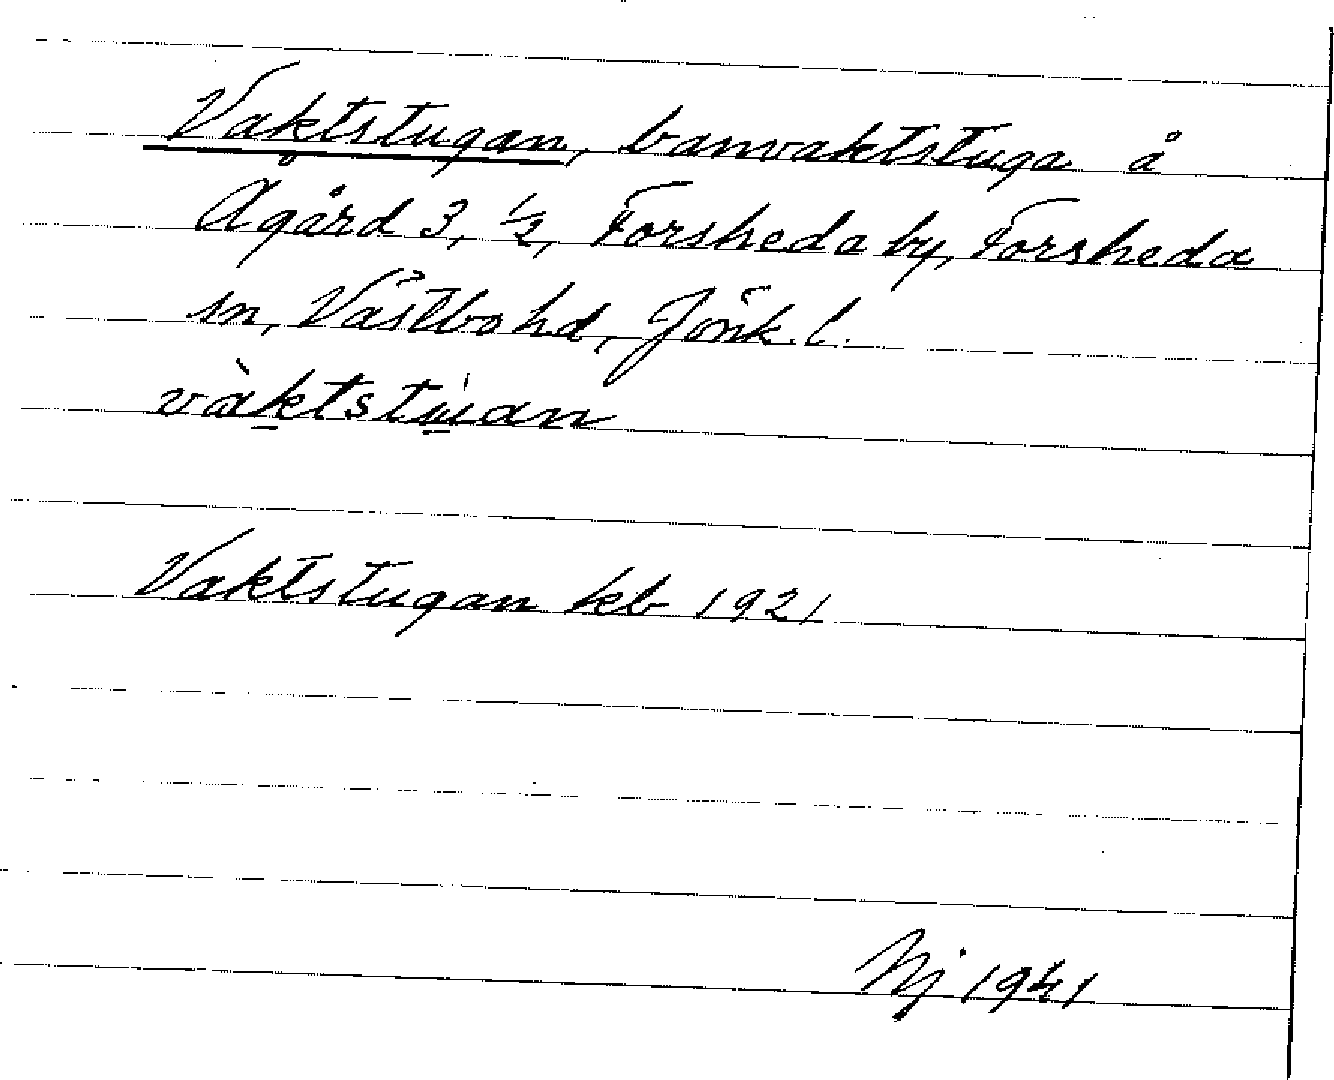 Vaktstugan, banvaktstuga å
Ågård 3, ½, Forsheda by, Forsheda
sn, Västbo hd, Jönk. l.
vàktstu̇an
Vaktstugan kb 1921
Nj 1941